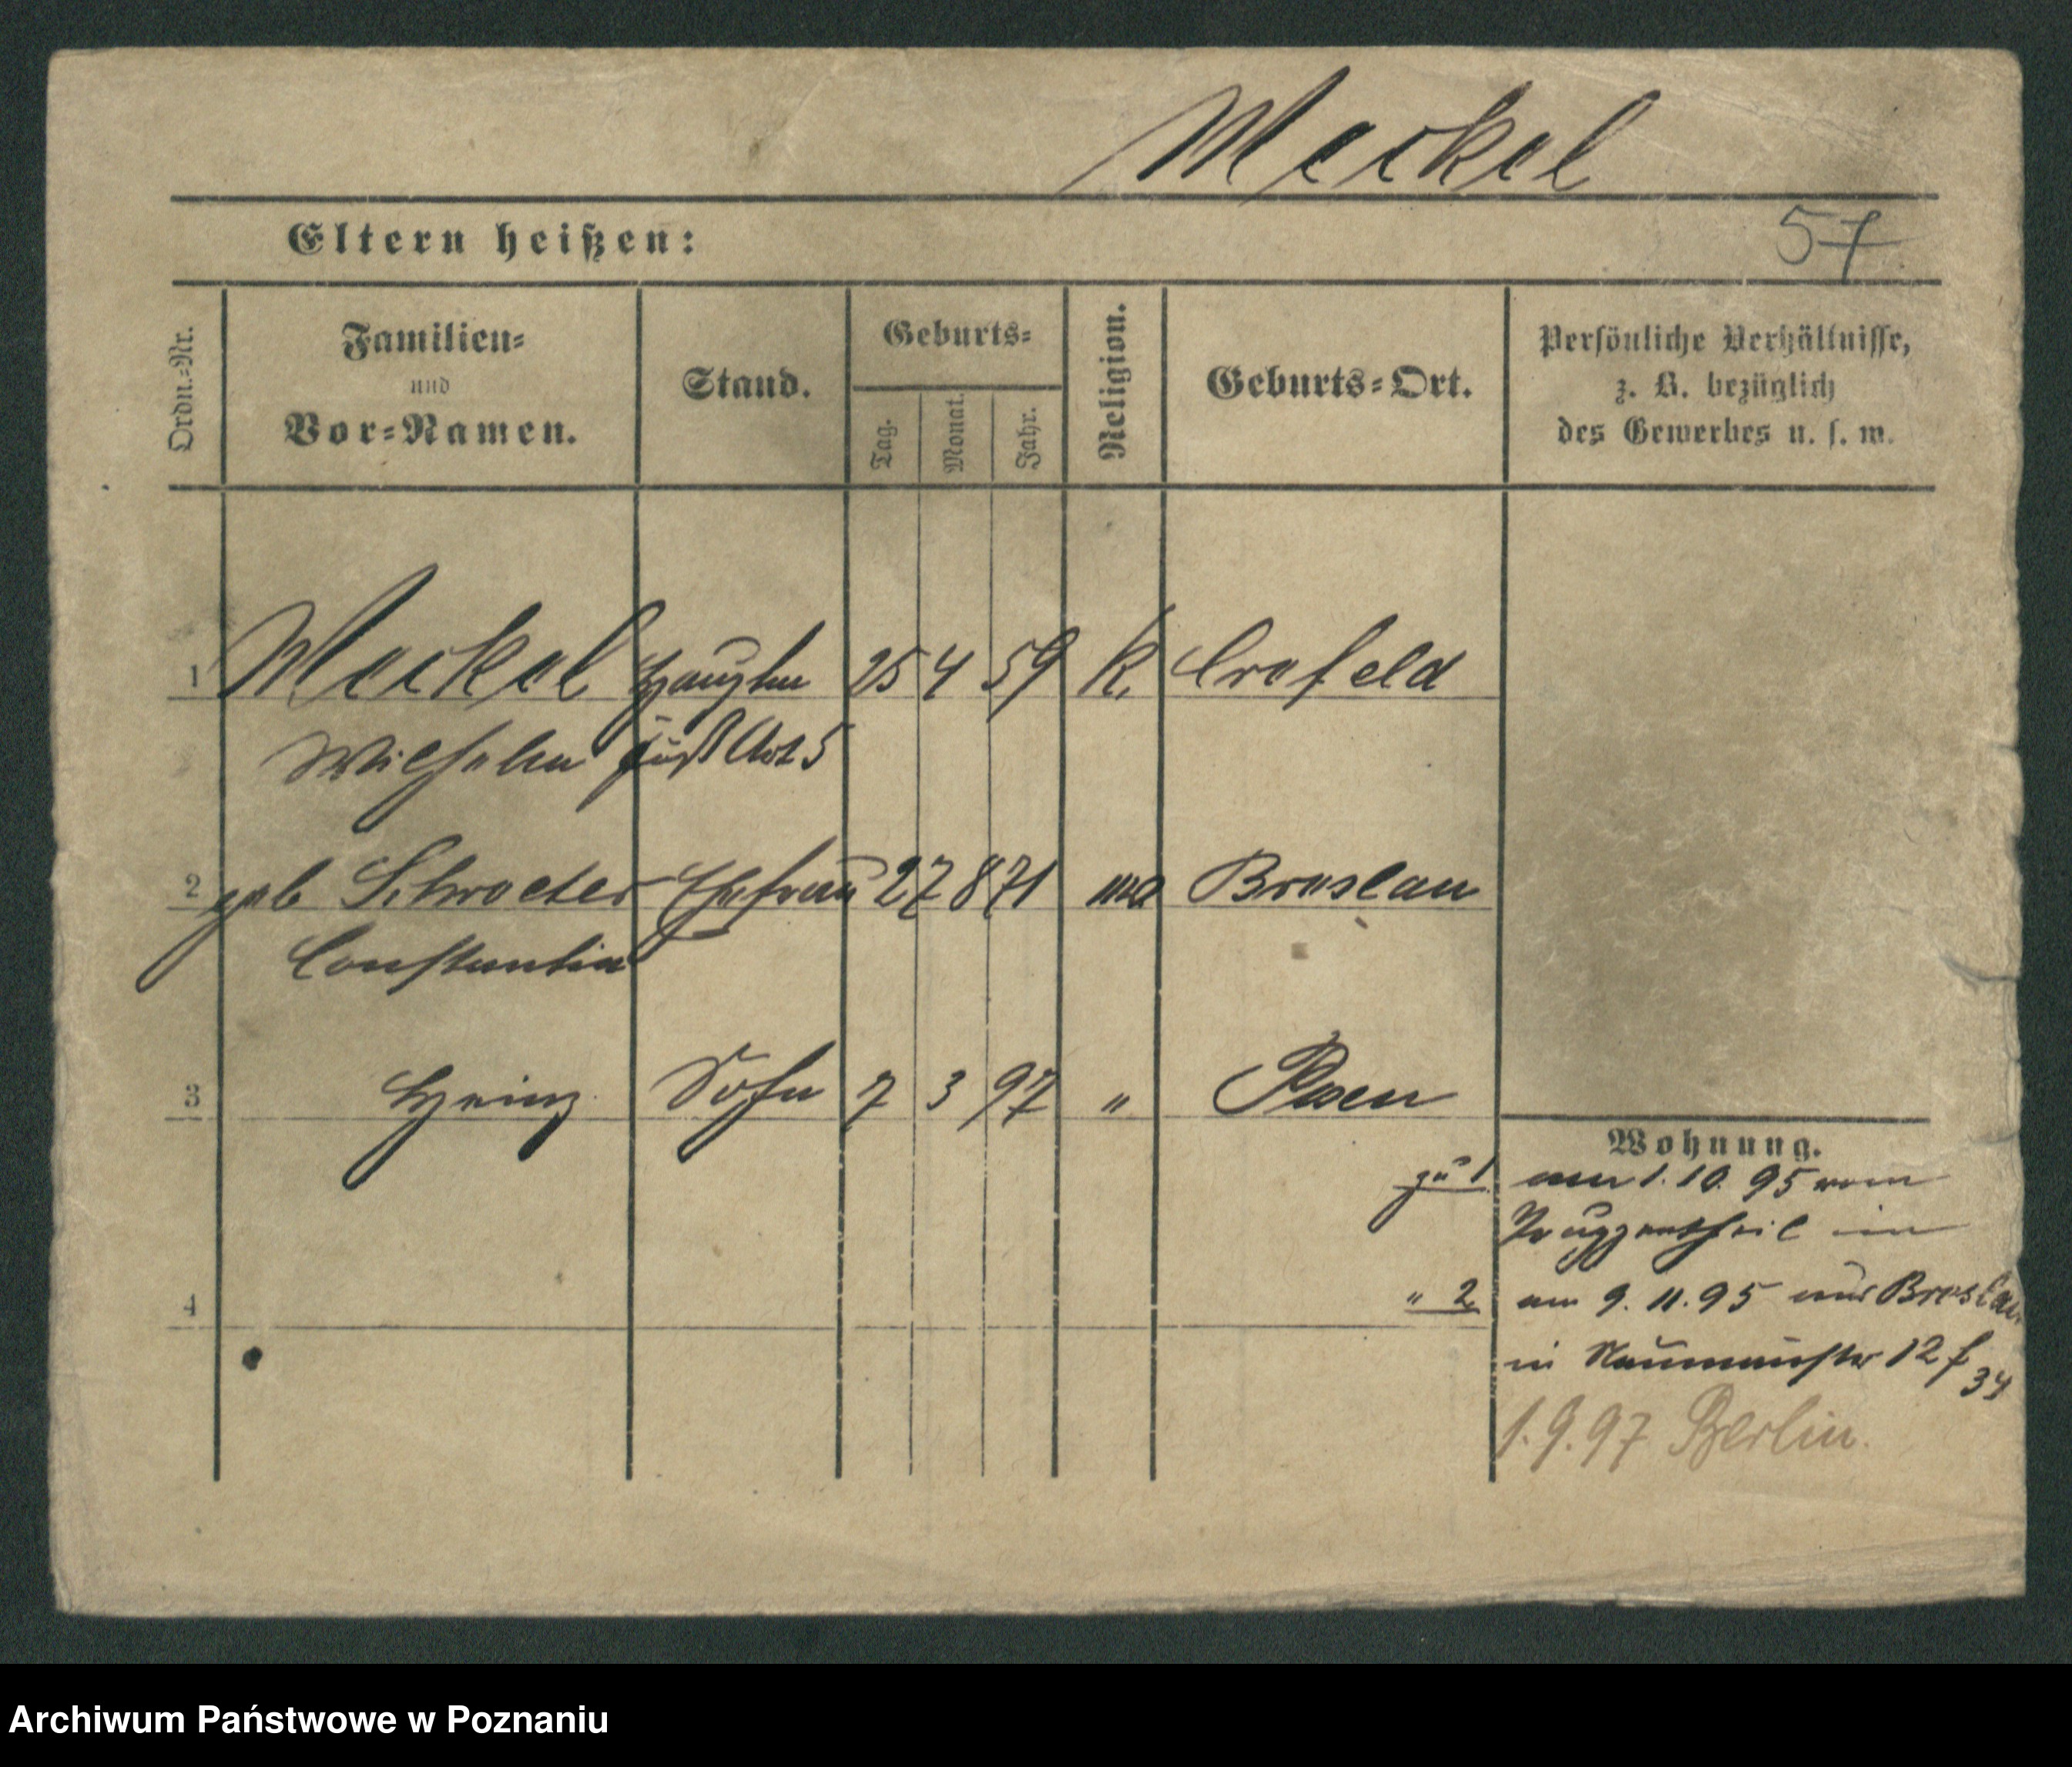 Meckel
Eltern heißen:
57
Ordn.-Nr.
Familien-
und
Vor-Namen.
Stand.
Geburts-
Tag.
Monat.
Jahr.
Religion.
Geburts-Ort.
Persönliche Verhältnisse,
z. B. bezüglich
des Gewerbes u. s. w.
1 Meckel Hauptm 25 4 59 K. Crefeld
Wilhelm Fuß Art 5
2 geb Schroeter Ehefrau 27 8 71 Breslau
Constantia
3 Heinz Sohn 7 3 97 " Posen
Wohnung.
zu 1 am 1. 10. 95 vom
Truppentheil in
4
" 2 am 9. 11. 95 aus Breslau
in Naumannstr 12 f
34
1. 9. 97 Berlin.
Archiwum Państwowe w Poznaniu